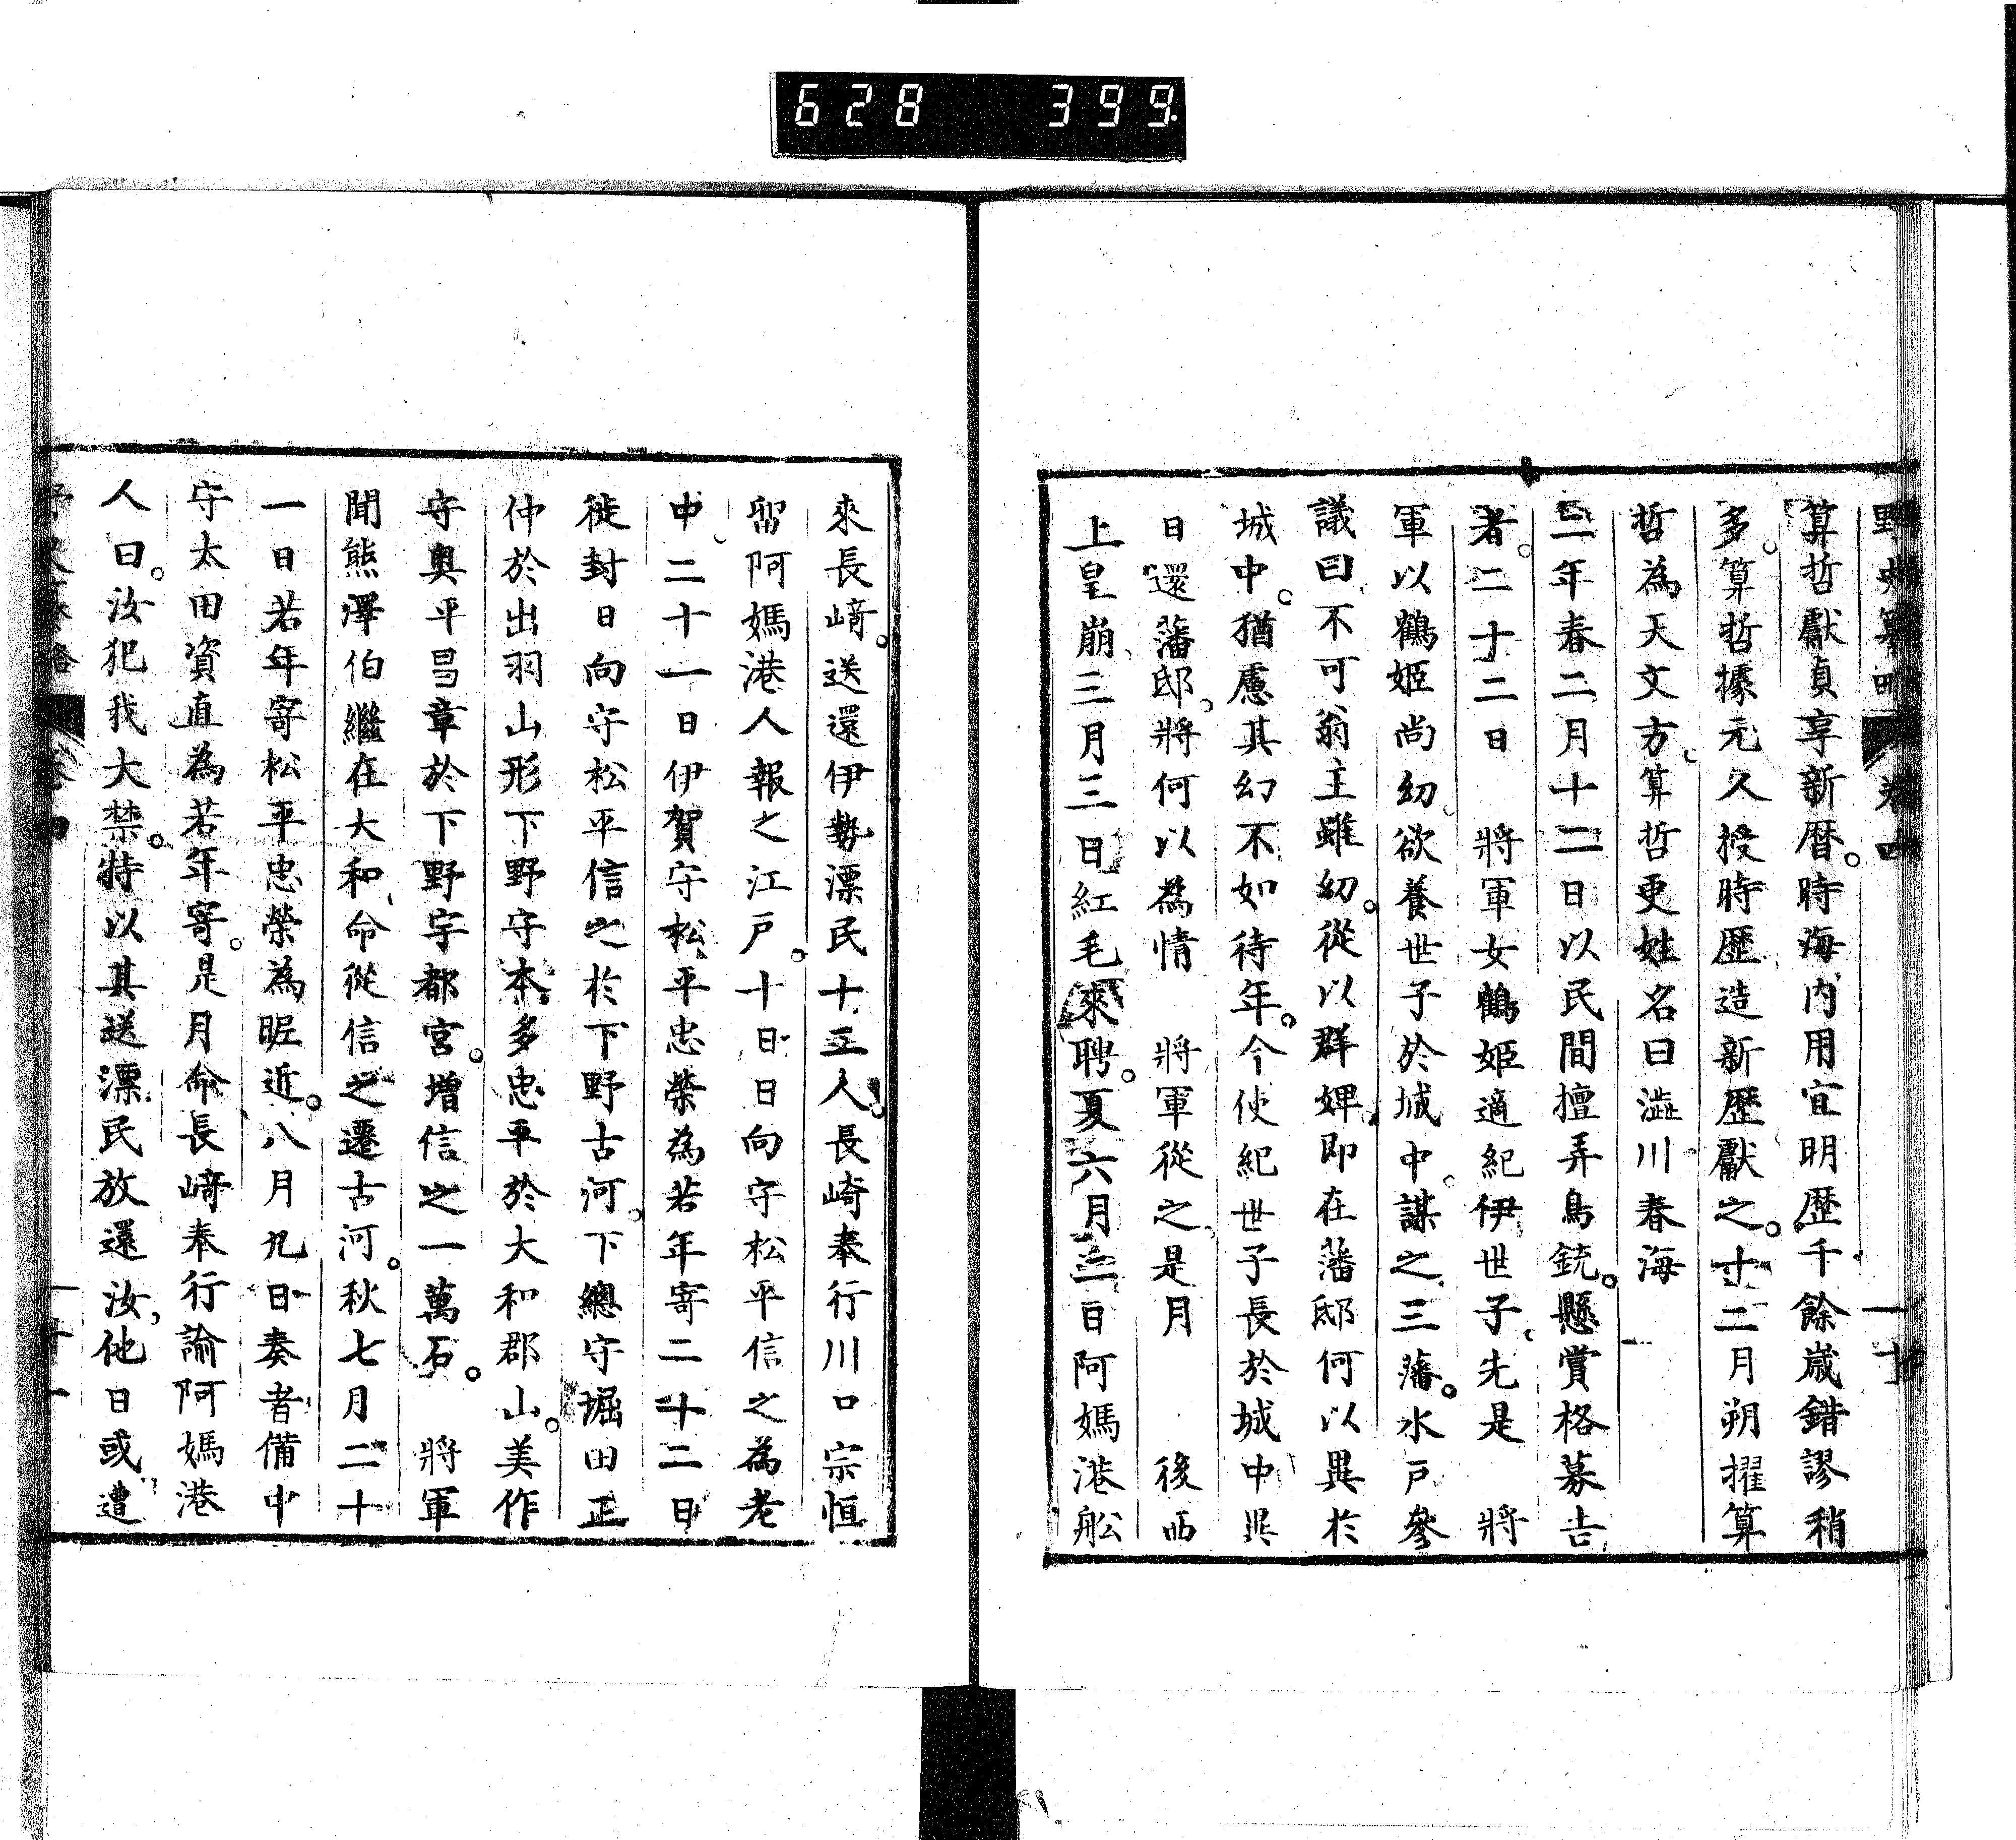 628 399
野史纂略 卷四
算哲獻貞享新暦。時海内用宣明歴千餘歲錯謬稍
多。算哲據元久授時歷造新歷獻之。十二月朔擢算
哲為天文方。算哲更姓名曰澁川春海
二年春二月十二日以民間擅弄鳥銃。懸賞格募告
者。二十二日 將軍女鶴姬適紀伊世子。先是 將
軍以鶴姬尚幼欲養世子於城中。謀之三藩。水戸參
議曰不可翁主雖幼。從以群婢。即在藩邸何以異於
城中。猶慮其幻不如待年。今使紀世子長於城中異
日還藩邸。將何以為情 將軍從之。是月 後西
上皇崩三月三日紅毛來聘。夏六月二日阿媽港舩
來長﨑。送還伊勢漂民十五人。長崎奉行川口宗恒
留阿媽港人報之江戸。十日日向守松平信之為老
中。二十一日伊賀守松平忠榮為若年寄二十二日
徙封日向守松平信之於下野古河。下總守堀田正
仲於出羽山形下野守本多忠平於大和郡山。美作
守奥平昌章於下野宇都宮。增信之一萬石。 將軍
聞熊澤伯繼在大和命從信之遷古河。秋七月二十
一日若年寄松平忠榮為昵近。八月九日奏者備中
守太田資直為若年寄。是月命長﨑奉行諭阿媽港
人曰。汝犯我大禁。特以其送漂民放還汝。他日或遭